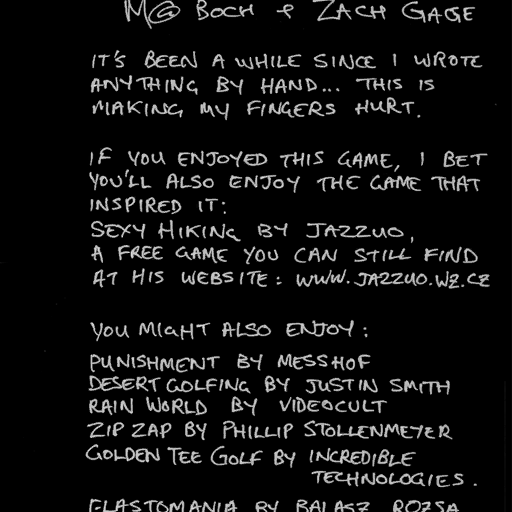 M@ BOCH & ZACH GAGE
IT'S BEEN A WHILE SINCE I WROTE
ANYTHING BY HAND... THIS IS
MAKING MY FINGERS HURT.
IF YOU ENJOYED THIS GAME, I BET
YOU'LL ALSO ENJOY THE GAME THAT
INSPIRED IT:
SEXY HIKING BY JAZZUO,
A FREE GAME YOU CAN STILL FIND
AT HIS WEBSITE: WWW.JAZZUO.WZ.CZ
YOU MIGHT ALSO ENJOY:
PUNISHMENT BY MESSHOF
DESERT GOLFING BY JUSTIN SMITH
RAIN WORLD BY VIDEOCULT
ZIP ZAP BY PHILLIP STOLLENMEYER
GOLDEN TEE GOLF BY INCREDIBLE
TECHNOLOGIES.
ELASTOMANIA BY BALASZ ROZSA